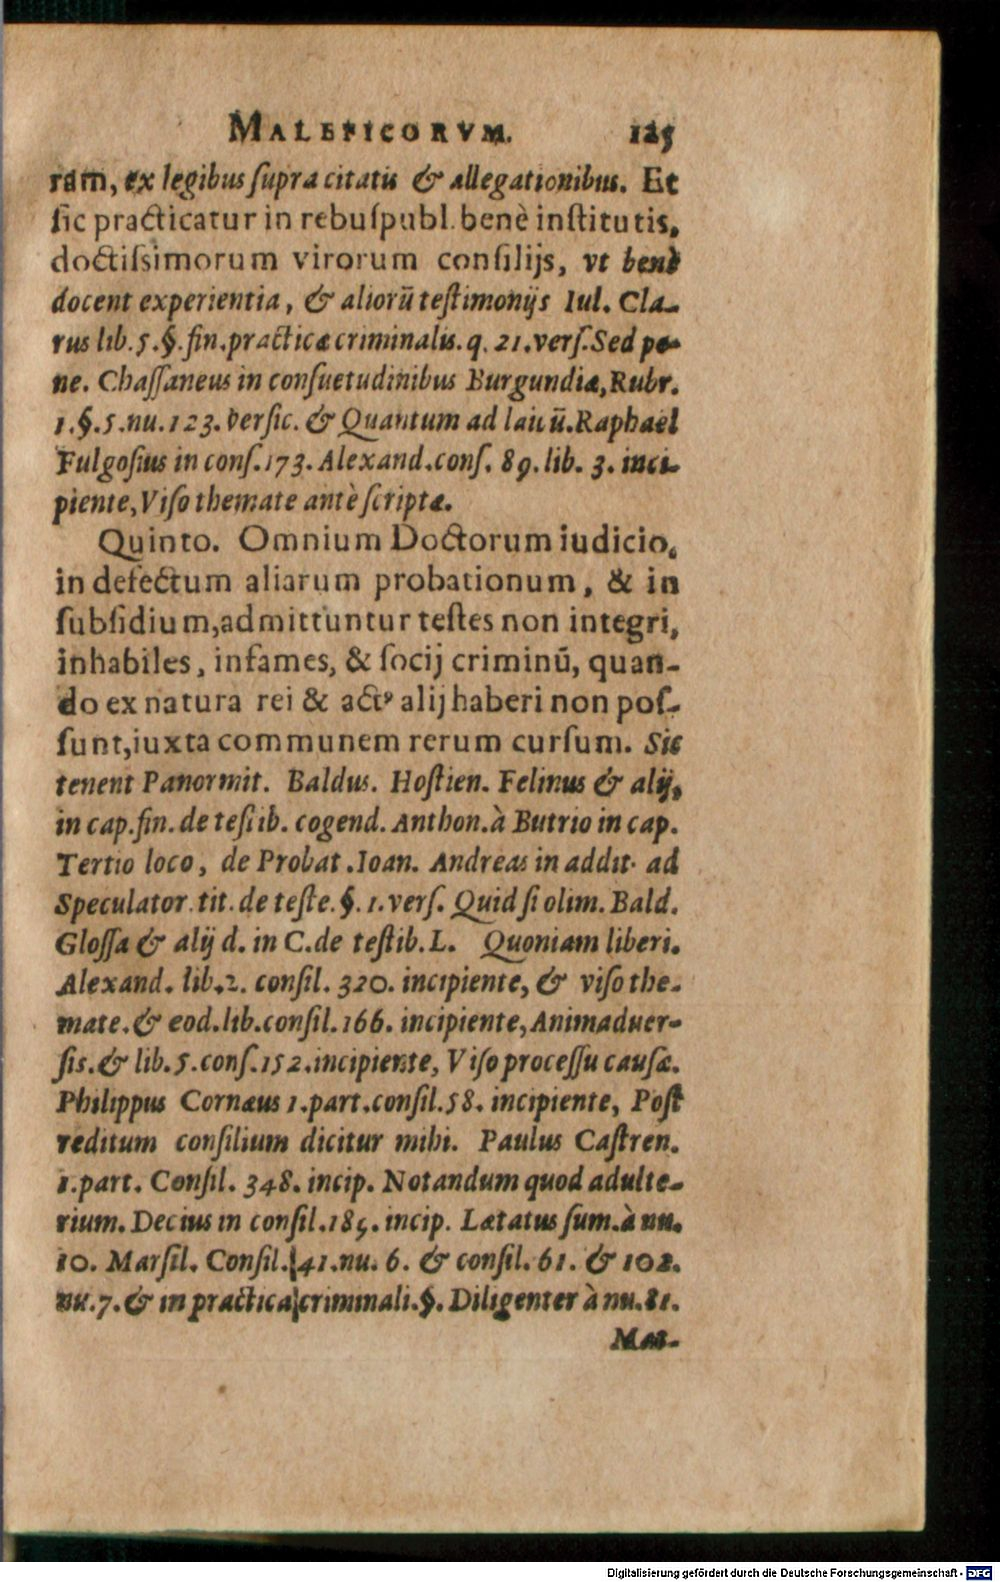 MALEFICORVM. 125
ram, ex legibus ſupra citatis & allegationibus. Et
ſic practicatur in rebuſpubl. benè inſtitutis,
doctiſsimorum virorum conſilijs, vt benè
docent experientia, & aliorũ teſtimonijs Iul. Cla-
rus lib. 5. §. fin. practicæ criminalis. q. 21. verſ. Sed pe-
ne. Chaſſaneus in conſuetudinibus Burgundiæ, Rubr.
1. §. 5. nu. 123. verſic. & Quantum ad
Raphael
Fulgoſius in conſ. 173. Alexand. conſ. 89. lib. 3. inci-
piente, Viſo themate antè ſcriptæ.
Quinto. Omnium Doctorum iudicio,
in defectum aliarum probationum, & in
ſubſidium, admittuntur teſtes non integri,
inhabiles, infames, & ſocij criminũ, quan-
do ex natura rei & actꝰ alij haberi non poſ-
ſunt, iuxta communem rerum curſum. Sic
tenent Panormit. Baldus. Hoſtien. Felinus & alij,
in cap. fin. de teſtib. cogend. Anthon. à Butrio in cap.
Tertio loco, de Probat. Ioan. Andreas in addit. ad
Speculator. tit. de teſte. §. 1. verſ. Quid ſi olim. Bald.
Gloſſa & alij d. in C. de teſtib. L. Quoniam liberi.
Alexand. lib. 2. conſil. 320. incipiente, & viſo the-
mate. & eod. lib. conſil. 166. incipiente, Animaduer-
ſis. & lib. 5. conſ. 152. incipiente, Viſo proceſſu cauſæ.
Philippus Cornæus 1. part. conſil. 58. incipiente, Poſt
reditum conſilium dicitur mihi. Paulus Caſtren.
1. part. Conſil. 348. incip. Notandum quod adulte-
rium. Decius in conſil. 185. incip. Lætatus ſum. à nu.
10. Marſil. Conſil. 41. nu. 6. & conſil. 61. & 102.
nu. 7. & in practica criminali. §. Diligenter à nu. 81.
Mat-
Digitalisierung gefördert durch die Deutsche Forschungsgemeinschaft - DFG